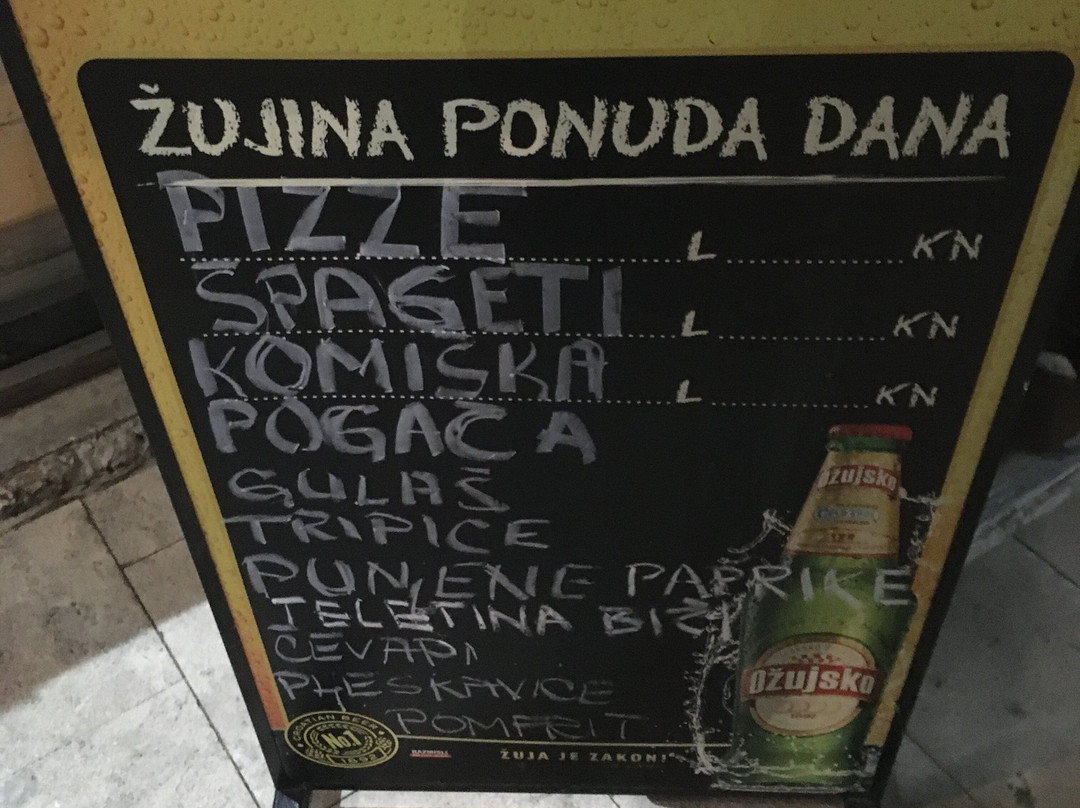 ŽUJINA PONUDA DANA
PIZZE L KN
ŠPAGETI L KN
KOMIŠKA L KN
POGAČA
GULAŠ
TRIPICE
PUNJENE PAPRIKE
TELETINA BIŽI
ĆEVAPI
PLJESKAVICE
POMFRIT
Ožujsko
Ožujsko
CROATIAN BEER
No1
1892
ŽUJA JE ZAKON!